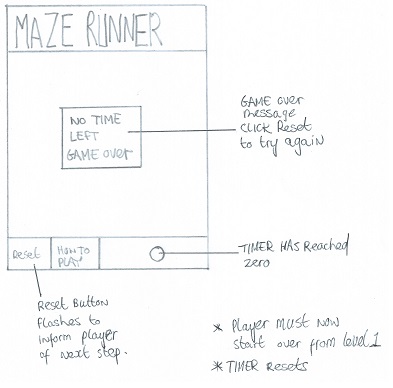 MAZE RUNNER
NO TIME
LEFT
GAME OVER
GAME Over
message
CLICK Reset
to try again
Reset
HOW TO
PLAY
0
TIMER HAS Reached
zero
Reset Button
Flashes to
inform player
of next step.
* Player must now
start over from level 1
* TIMER Resets